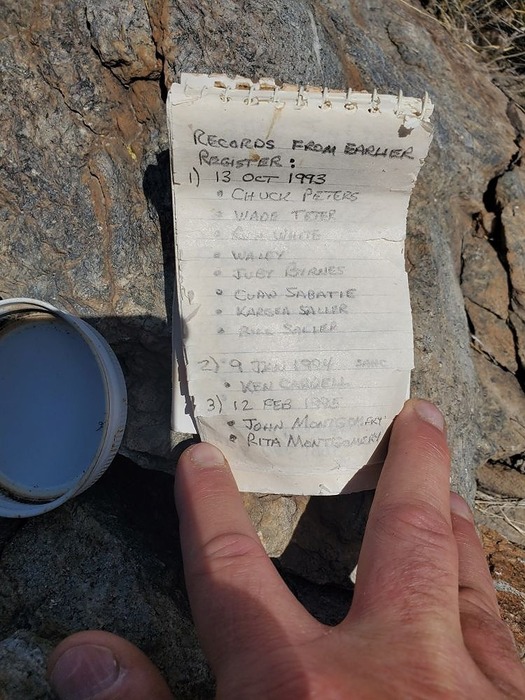 RECORDS FROM EARLIER
REGISTER:
1) 13 OCT 1993
• CHUCK PETERS
• WADE TETER
• WHITE
• WALLY
• JUDY BYRNES
• SABATIE
• KARGEA SALLER
• BILL SALLER
2) 9 JAN 1994
• KEN CARDELL
3) 12 FEB 1995
• JOHN MONTGOMERY
• RITA MONTGOMERY